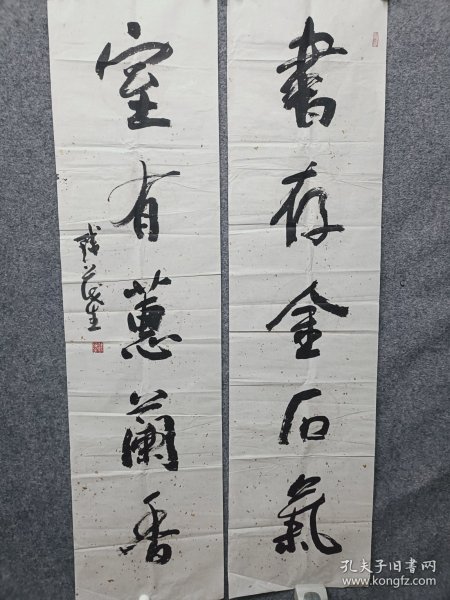 書存金石氣
室有蕙蘭香
茂生
孔夫子旧书网
www.kongfz.com